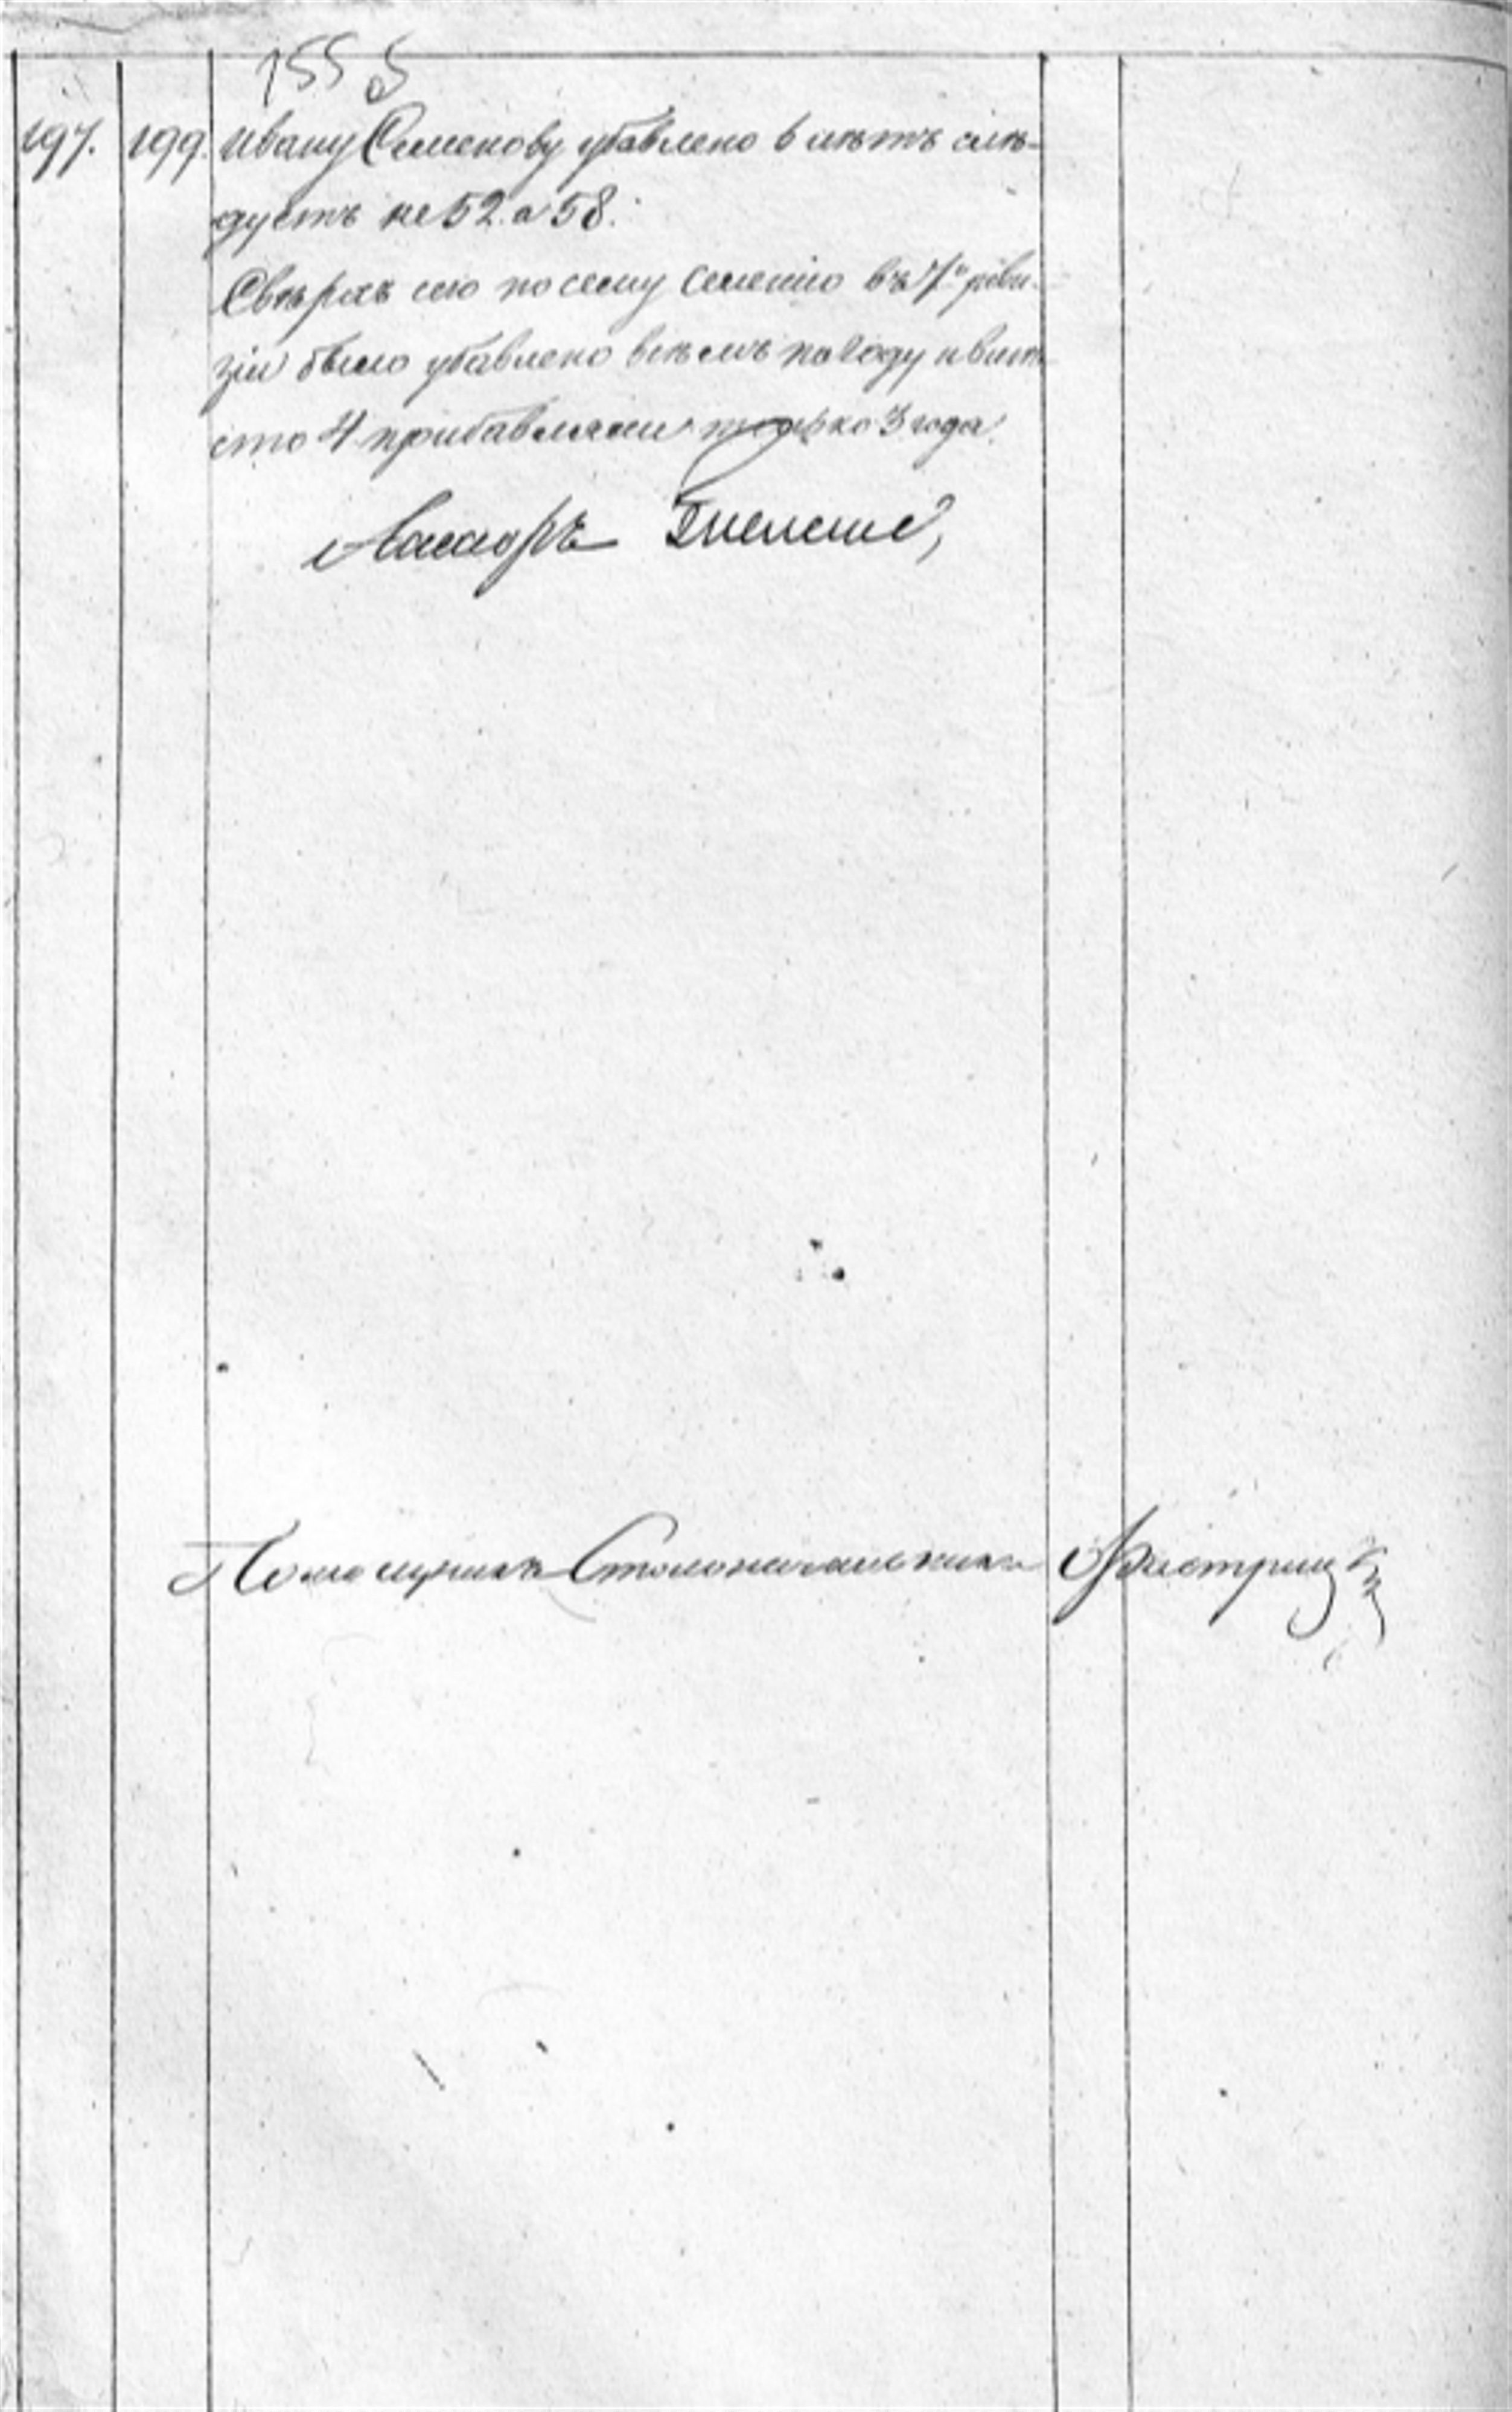 155
197. 199. Ивану Семенову убавлено 6 лѣтъ слѣ-
дуетъ не 52. а 58.
Свѣрхъ сего по сему селенію въ 7й реви-
зіи было убавлено всѣмъ по году и вмѣ-
сто 4 прибавляли только 3 года.
Помощникъ Столоначальника